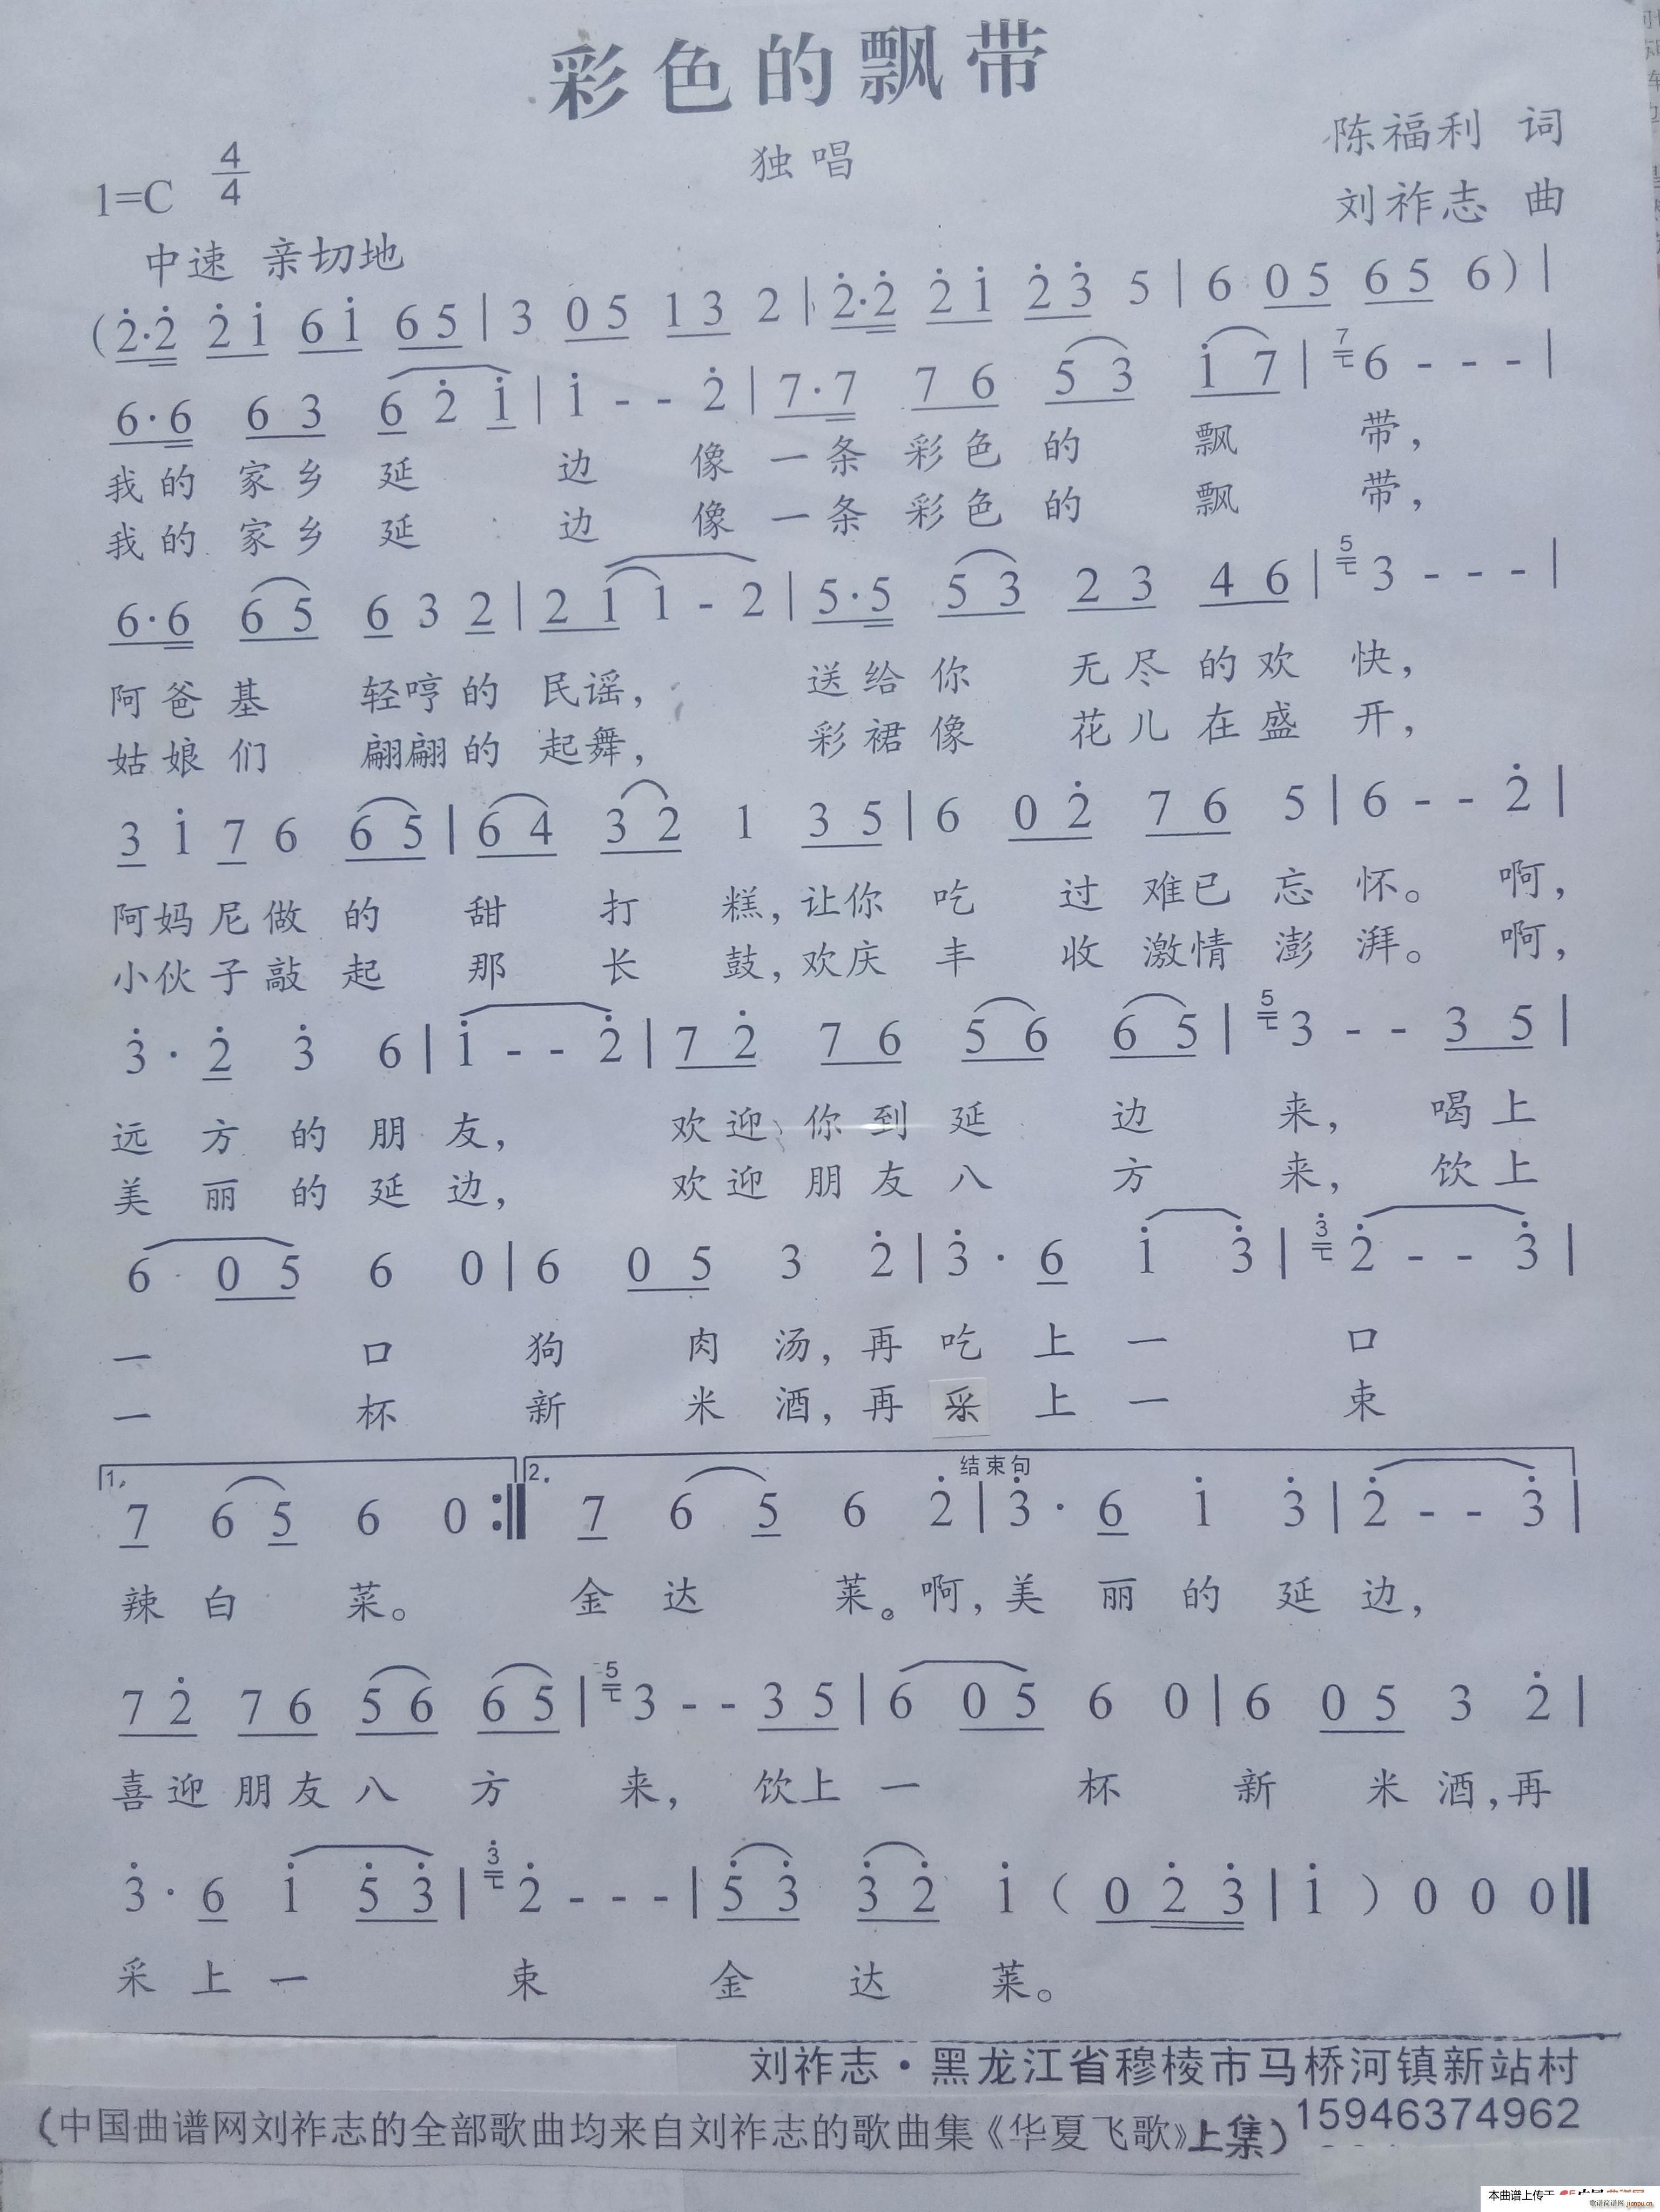 彩色的飘带
独唱
陈福利 词
刘祚志 曲
1=C 4/4
中速 亲切地
(2̇·2̇ 2̇ 1̇ 6 1̇ 6 5 | 3 0 5 1 3 2 | 2̇·2̇ 2̇ 1̇ 2̇ 3̇ 5 | 6 0 5 6 5 6) |
6·6 6 3 6 2̇ 1̇ | 1̇ - - 2̇ | 7·7 7 6 5 3 1̇ 7 | 7 6 - - - |
我的 家乡 延 边 像 一条 彩色 的 飘 带,
我的 家乡 延 边 像 一条 彩色 的 飘 带,
6·6 6 5 6 3 2 | 2 1 1 - 2 | 5·5 5 3 2 3 4 6 | 5 3 - - - |
阿爸基 轻哼的 民谣, 送给你 无尽 的欢 快,
姑娘们 翩翩的 起舞, 彩裙像 花儿 在盛 开,
3 1̇ 7 6 6 5 | 6 4 3 2 1 3 5 | 6 0 2̇ 7 6 5 | 6 - - 2̇ |
阿妈尼做 的 甜 打 糕,让你 吃 过 难已 忘 怀。 啊,
小伙子敲 起 那 长 鼓,欢庆 丰 收 激情 澎 湃。 啊,
3̇ · 2̇ 3̇ 6 | 1̇ - - 2̇ | 7 2̇ 7 6 5 6 6 5 | 5 3 - - 3 5 |
远 方 的 朋 友, 欢迎 你到 延 边 来, 喝上
美 丽 的 延 边, 欢迎 朋友 八 方 来, 饮上
6 0 5 6 0 | 6 0 5 3 2̇ | 3̇ · 6 1̇ 3̇ | 3̇ 2̇ - - 3̇ |
一 口 狗 肉 汤,再 吃 上 一 口
一 杯 新 米 酒,再 采 上 一 束
1. 2. 结束句
7 6 5 6 0 :‖ 7 6 5 6 2̇ | 3̇ · 6 1̇ 3̇ | 2̇ - - 3̇ |
辣 白 菜。 金 达 莱。啊,美 丽 的 延 边,
7 2̇ 7 6 5 6 6 5 | 5 3 - - 3 5 | 6 0 5 6 0 | 6 0 5 3 2̇ |
喜迎 朋友 八 方 来, 饮上 一 杯 新 米 酒,再
3̇ · 6 1̇ 5̇ 3̇ | 3̇ 2̇ - - - | 5̇ 3̇ 3̇ 2̇ 1̇ ( 0 2̇ 3̇ | 1̇ ) 0 0 0 ‖
采 上 一 束 金 达 莱。
刘祚志·黑龙江省穆棱市马桥河镇新站村
(中国曲谱网刘祚志的全部歌曲均来自刘祚志的歌曲集《华夏飞歌》上集) 15946374962
本曲谱上传于
歌谱简谱网 jianpu.cn